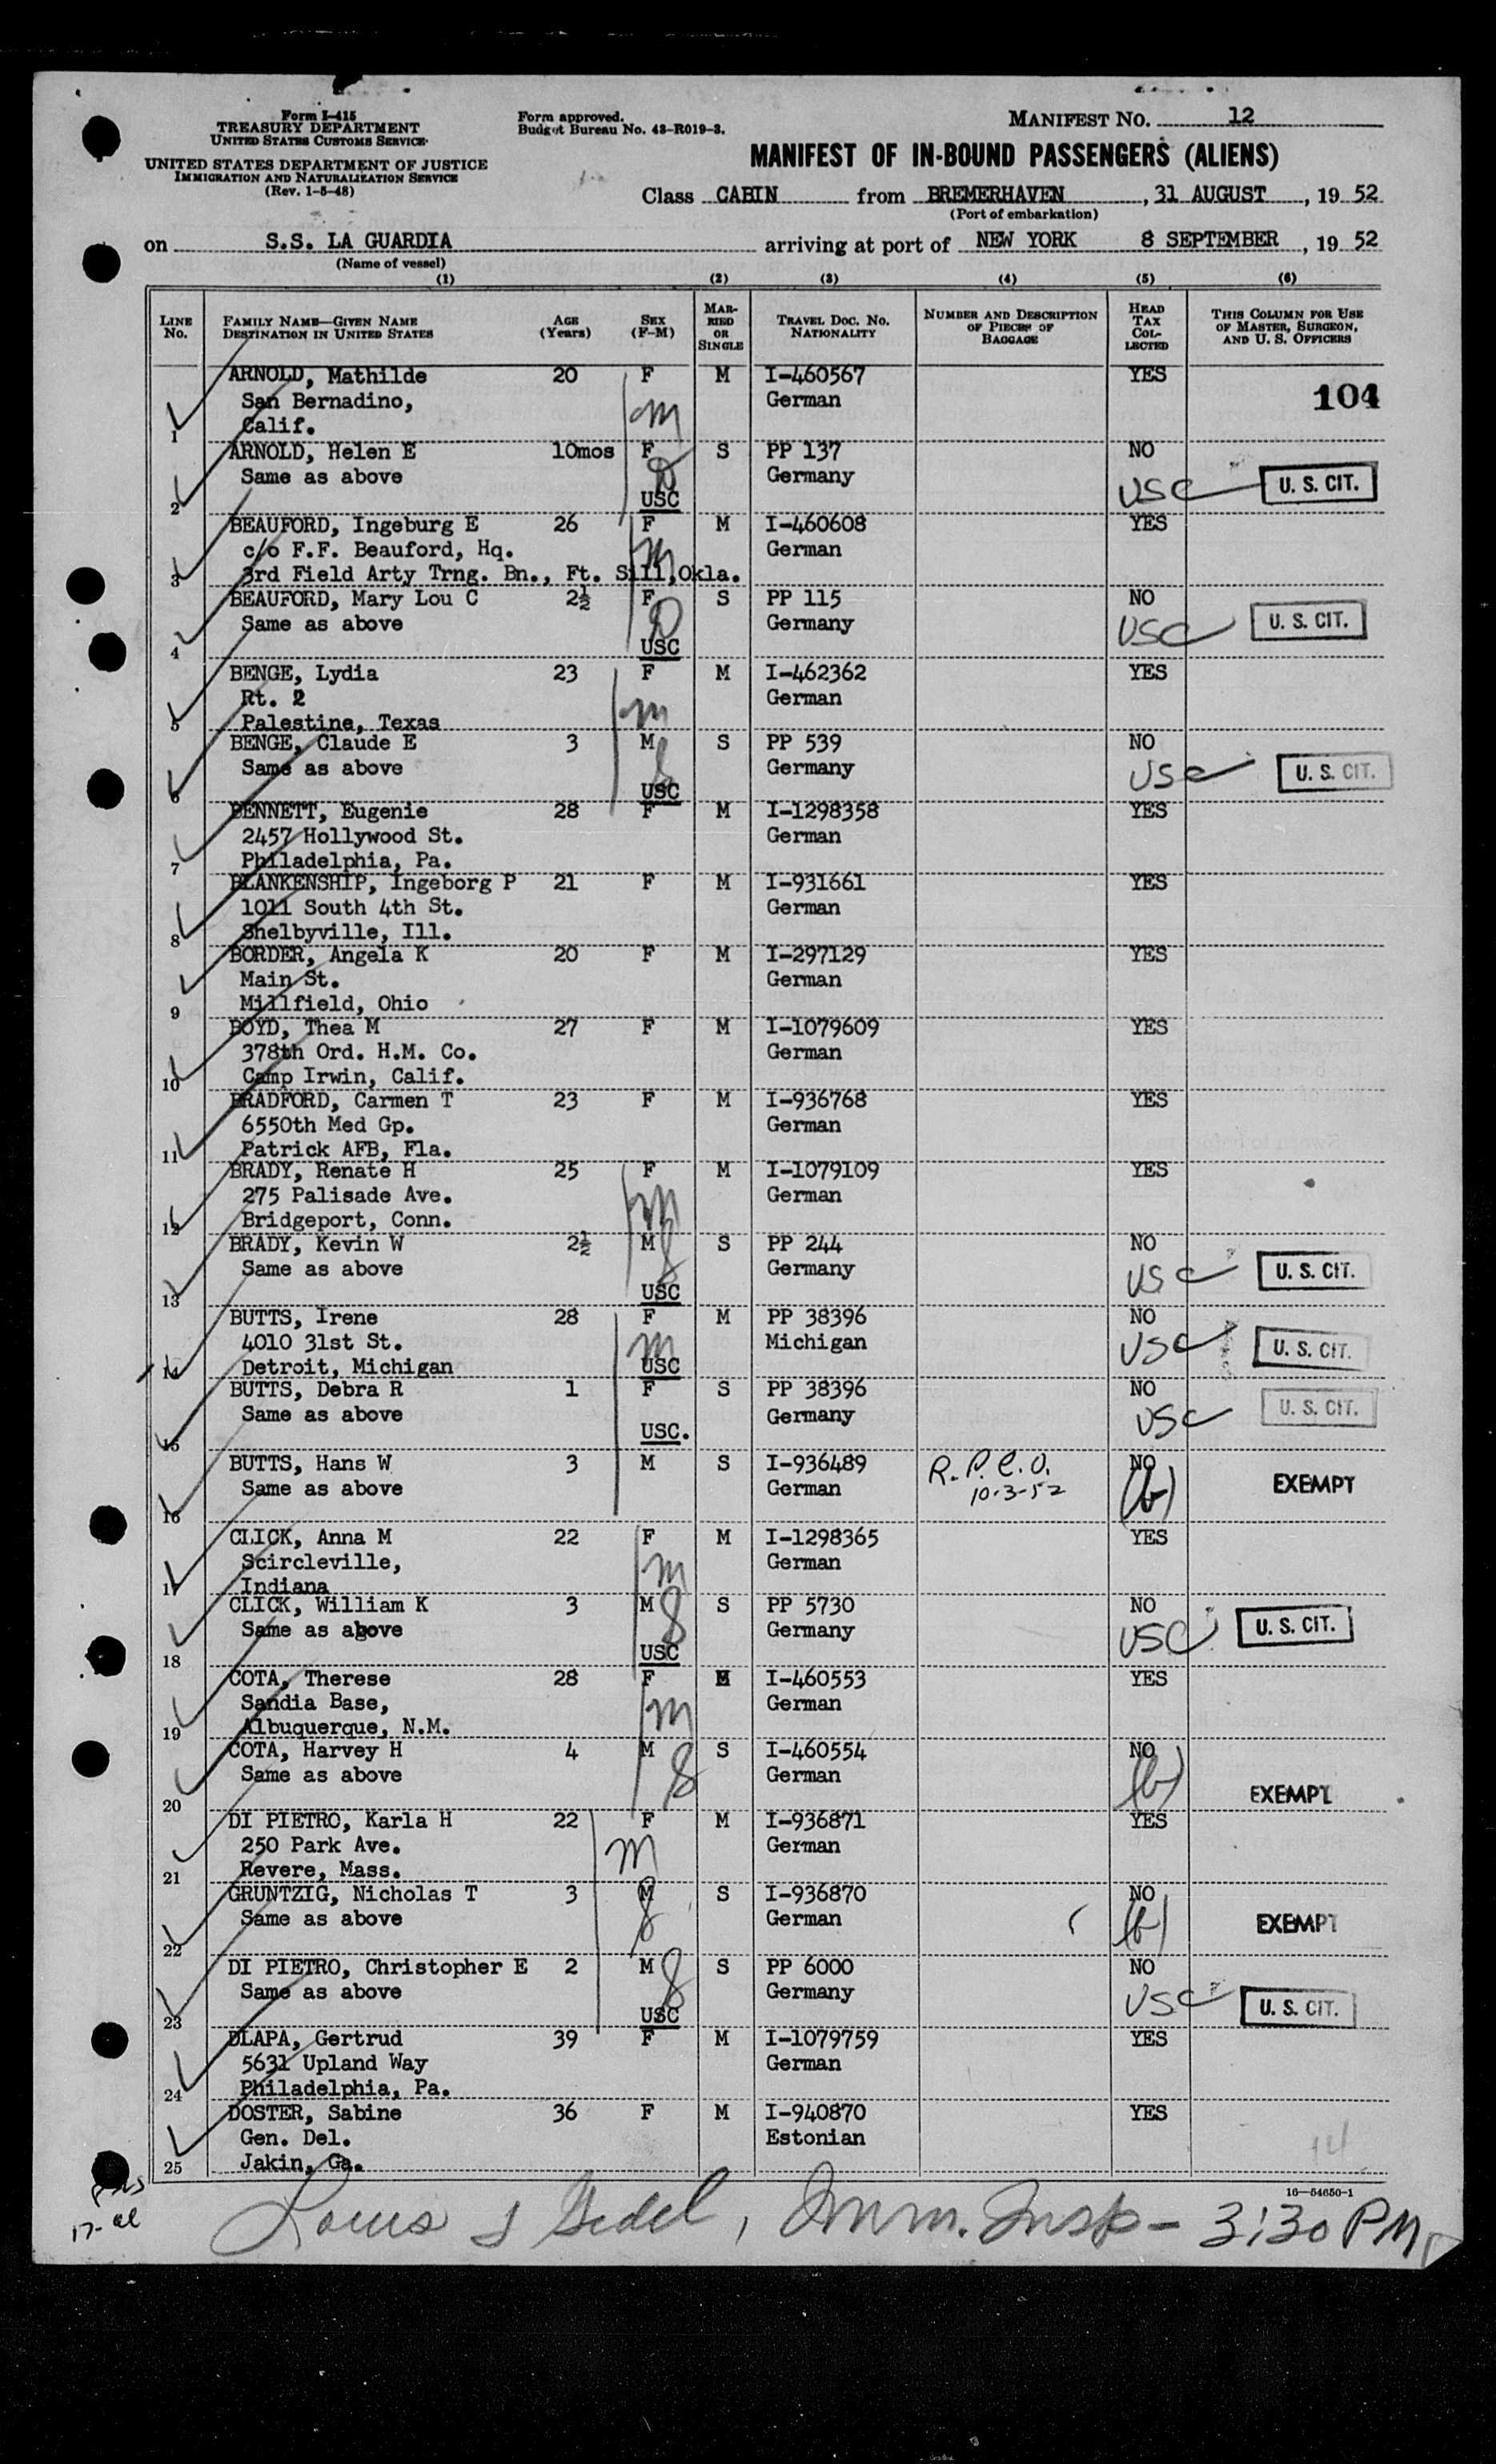 Form I-415
TREASURY DEPARTMENT
UNITED STATES CUSTOMS SERVICE
UNITED STATES DEPARTMENT OF JUSTICE
IMMIGRATION AND NATURALIZATION SERVICE
(Rev. 1-5-48)
Form approved.
Budget Bureau No. 43-R019-3.
MANIFEST NO. 12
MANIFEST OF IN-BOUND PASSENGERS (ALIENS)
Class CABIN from BREMERHAVEN, 31 AUGUST, 19 52
(Port of embarkation)
on S.S. LA GUARDIA arriving at port of NEW YORK 8 SEPTEMBER, 19 52
(Name of vessel)
(1) (2) (3) (4) (5) (6)
LINE No. FAMILY NAME—GIVEN NAME DESTINATION IN UNITED STATES AGE (Years) SEX (F-M) MARRIED OR SINGLE TRAVEL DOC. NO. NATIONALITY NUMBER AND DESCRIPTION OF PIECES OF BAGGAGE HEAD TAX COLLECTED THIS COLUMN FOR USE OF MASTER, SURGEON, AND U. S. OFFICERS
ARNOLD, Mathilde 20 F M I-460567 YES
San Bernadino, m German 104
1 Calif.
ARNOLD, Helen E 10mos F S PP 137 NO
Same as above Germany USC U. S. CIT.
2 USC
BEAUFORD, Ingeburg E 26 F M I-460608 YES
c/o F.F. Beauford, Hq. m German
3 3rd Field Arty Trng. Bn., Ft. Sill,Okla.
BEAUFORD, Mary Lou C 2½ F S PP 115 NO
Same as above Germany USC U. S. CIT.
4 USC
BENGE, Lydia 23 F M I-462362 YES
Rt. 2 m German
5 Palestine, Texas
BENGE, Claude E 3 M S PP 539 NO
Same as above Germany USC U. S. CIT.
6 USC
BENNETT, Eugenie 28 F M I-1298358 YES
2457 Hollywood St. German
7 Philadelphia, Pa.
BLANKENSHIP, Ingeborg P 21 F M I-931661 YES
1011 South 4th St. German
8 Shelbyville, Ill.
BORDER, Angela K 20 F M I-297129 YES
Main St. German
9 Millfield, Ohio
BOYD, Thea M 27 F M I-1079609 YES
378th Ord. H.M. Co. German
10 Camp Irwin, Calif.
BRADFORD, Carmen T 23 F M I-936768 YES
6550th Med Gp. German
11 Patrick AFB, Fla.
BRADY, Renate H 25 F M I-1079109 YES
275 Palisade Ave. m German
12 Bridgeport, Conn.
BRADY, Kevin W 2½ M S PP 244 NO
Same as above Germany USC U. S. CIT.
13 USC
BUTTS, Irene 28 F M PP 38396 NO
4010 31st St. m Michigan USC U. S. CIT.
14 Detroit, Michigan USC
BUTTS, Debra R 1 F S PP 38396 NO
Same as above Germany USC U. S. CIT.
15 USC.
BUTTS, Hans W 3 M S I-936489 R.P.C.O. NO
Same as above German 10-3-52 (b) EXEMPT
16
CLICK, Anna M 22 F M I-1298365 YES
Scircleville, m German
17 Indiana
CLICK, William K 3 M S PP 5730 NO
Same as above Germany USC U. S. CIT.
18 USC
COTA, Therese 28 F M I-460553 YES
Sandia Base, m German
19 Albuquerque, N.M.
COTA, Harvey H 4 M S I-460554 NO
Same as above German (b) EXEMPT
20
DI PIETRO, Karla H 22 F M I-936871 YES
250 Park Ave. m German
21 Revere, Mass.
GRUNTZIG, Nicholas T 3 M S I-936870 NO
Same as above German (b) EXEMPT
22
DI PIETRO, Christopher E 2 M S PP 6000 NO
Same as above Germany USC U. S. CIT.
23 USC
DLAPA, Gertrud 39 F M I-1079759 YES
5631 Upland Way German
24 Philadelphia, Pa.
DOSTER, Sabine 36 F M I-940870 YES
Gen. Del. Estonian
25 Jakin, Ga. 14
16—54650-1
Louis J Gedel, Imm. Insp - 3:30 PM